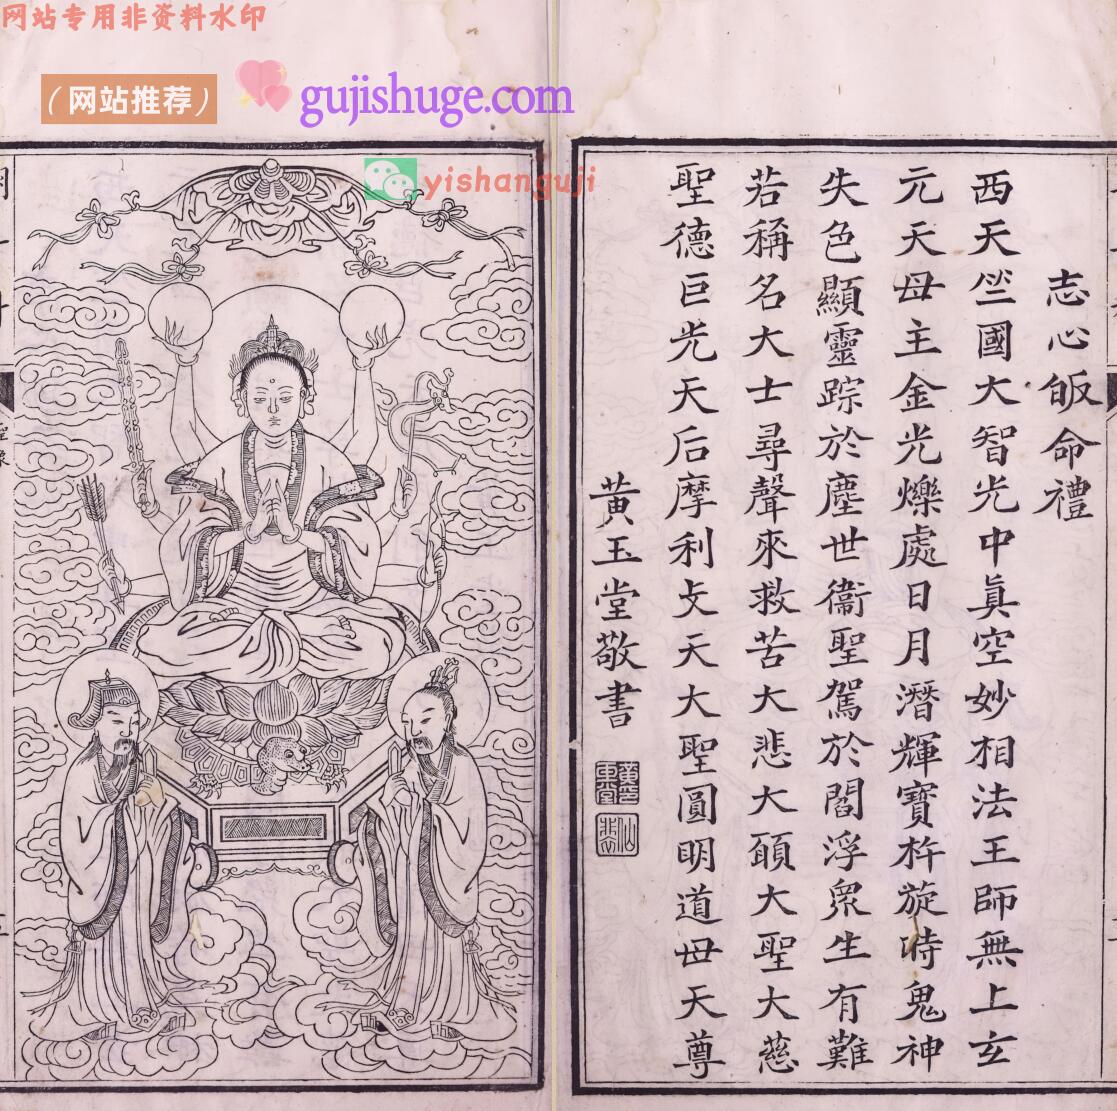 网站专用非资料水印
（网站推荐）
gujishuge.com
yishanguji
志心皈命禮
西天竺國大智光中眞空妙相法王師無上玄
元天母主金光爍處日月潛輝寶杵旋時鬼神
失色顯靈踪於塵世衞聖駕於閻浮衆生有難
若稱名大士尋聲來救苦大悲大願大聖大慈
聖德巨光天后摩利攴天大聖圓明道母天尊
黃玉堂敬書